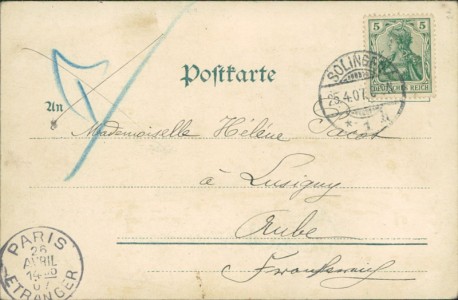 Postkarte
5 5
DEUTSCHES REICH
SOLINGEN
25.4.07.
* 1 
An
Mademoiselle Hélène Jacot
à Lusigny
Aube
Frankreich
PARIS
26
AVRIL
07
ETRANGER